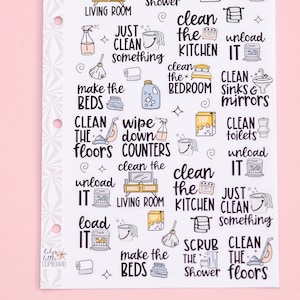 LIVING ROOM
Shower
clean
the
KITCHEN
JUST
CLEAN
something
unload
IT
clean the
BEDROOM
CLEAN
sinks &
mirrors
make the
BEDS
CLEAN
THE
floors
wipe
down
COUNTERS
CLEAN
toilets
unload
IT
clean the
LIVING ROOM
unload
IT
clean
the
KITCHEN
JUST
CLEAN
something
load
IT
make the
BEDS
SCRUB
THE
Shower
CLEAN
THE
floors
CUPBOARD